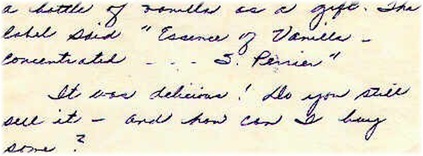 a bottle of vanilla as a gift. The
label said "Essence of Vanilla -
Concentrated - - - S. Perrier"
It was delicious! Do you still
sell it - and how can I buy
some?